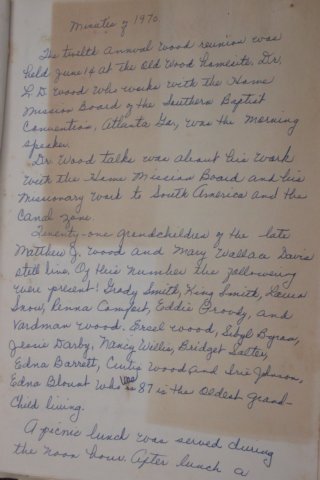 Minutes of 1970
The twelth annual Wood reunion was
held June 14 at the Old Wood homesite, Dr.
L. D. Wood who works with the Home
Mission Board of the Southern Baptist
Convention, Atlanta Ga., was the morning
speaker.
Dr. Wood talks was about his work
with the Home Mission Board and his
Missionary Work to South America and the
Canal Zone.
Twenty-one grandchildren of the late
Matthew J. Wood and Mary Wallace Davis
still live. Of this number the following
were present! Grady Smith, King Smith, Laura
Snow, Penna Comfort, Eddie Grovdy, and
Vardman Wood. Excel Wood, Sibyl Byram,
Jessie Darby, Nancy Willis, Bridget Salter,
Edna Barrett, Curtis Wood and Irie Johnson,
Edna Blount who was 87 is the Oldest grand-
child living.
A picnic lunch was served during
the noon hour. After lunch a